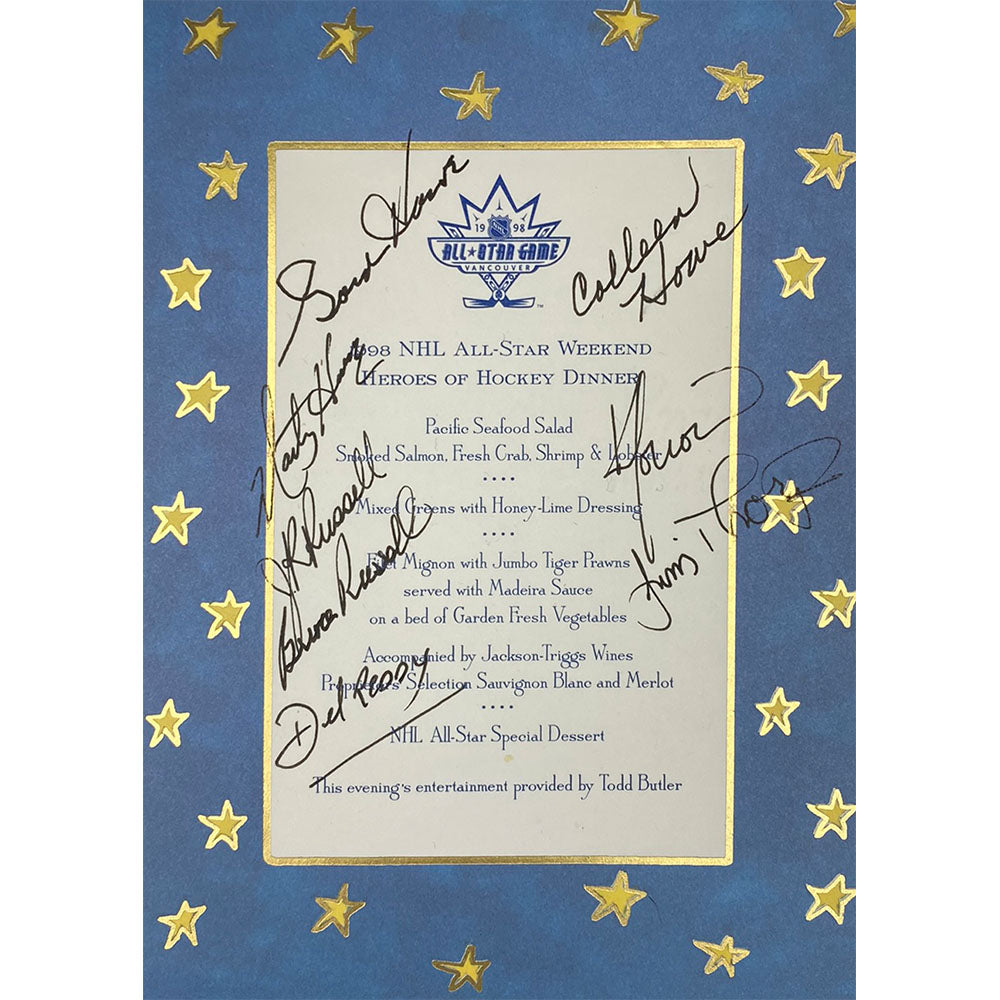 Gord Howe
Colleen
Howe
19 NHL 98
ALL★STAR GAME
VANCOUVER
TM
1998 NHL All-Star Weekend
Heroes of Hockey Dinner
Marty Howe
Pacific Seafood Salad
Smoked Salmon, Fresh Crab, Shrimp & Lobster
J.R. Russell
Mixed Greens with Honey-Lime Dressing
Bruce Russell
Filet Mignon with Jumbo Tiger Prawns
served with Madeira Sauce
on a bed of Garden Fresh Vegetables
Accompanied by Jackson-Triggs Wines
Proprietor's Selection Sauvignon Blanc and Merlot
Del Reddy
NHL All-Star Special Dessert
This evening's entertainment provided by Todd Butler